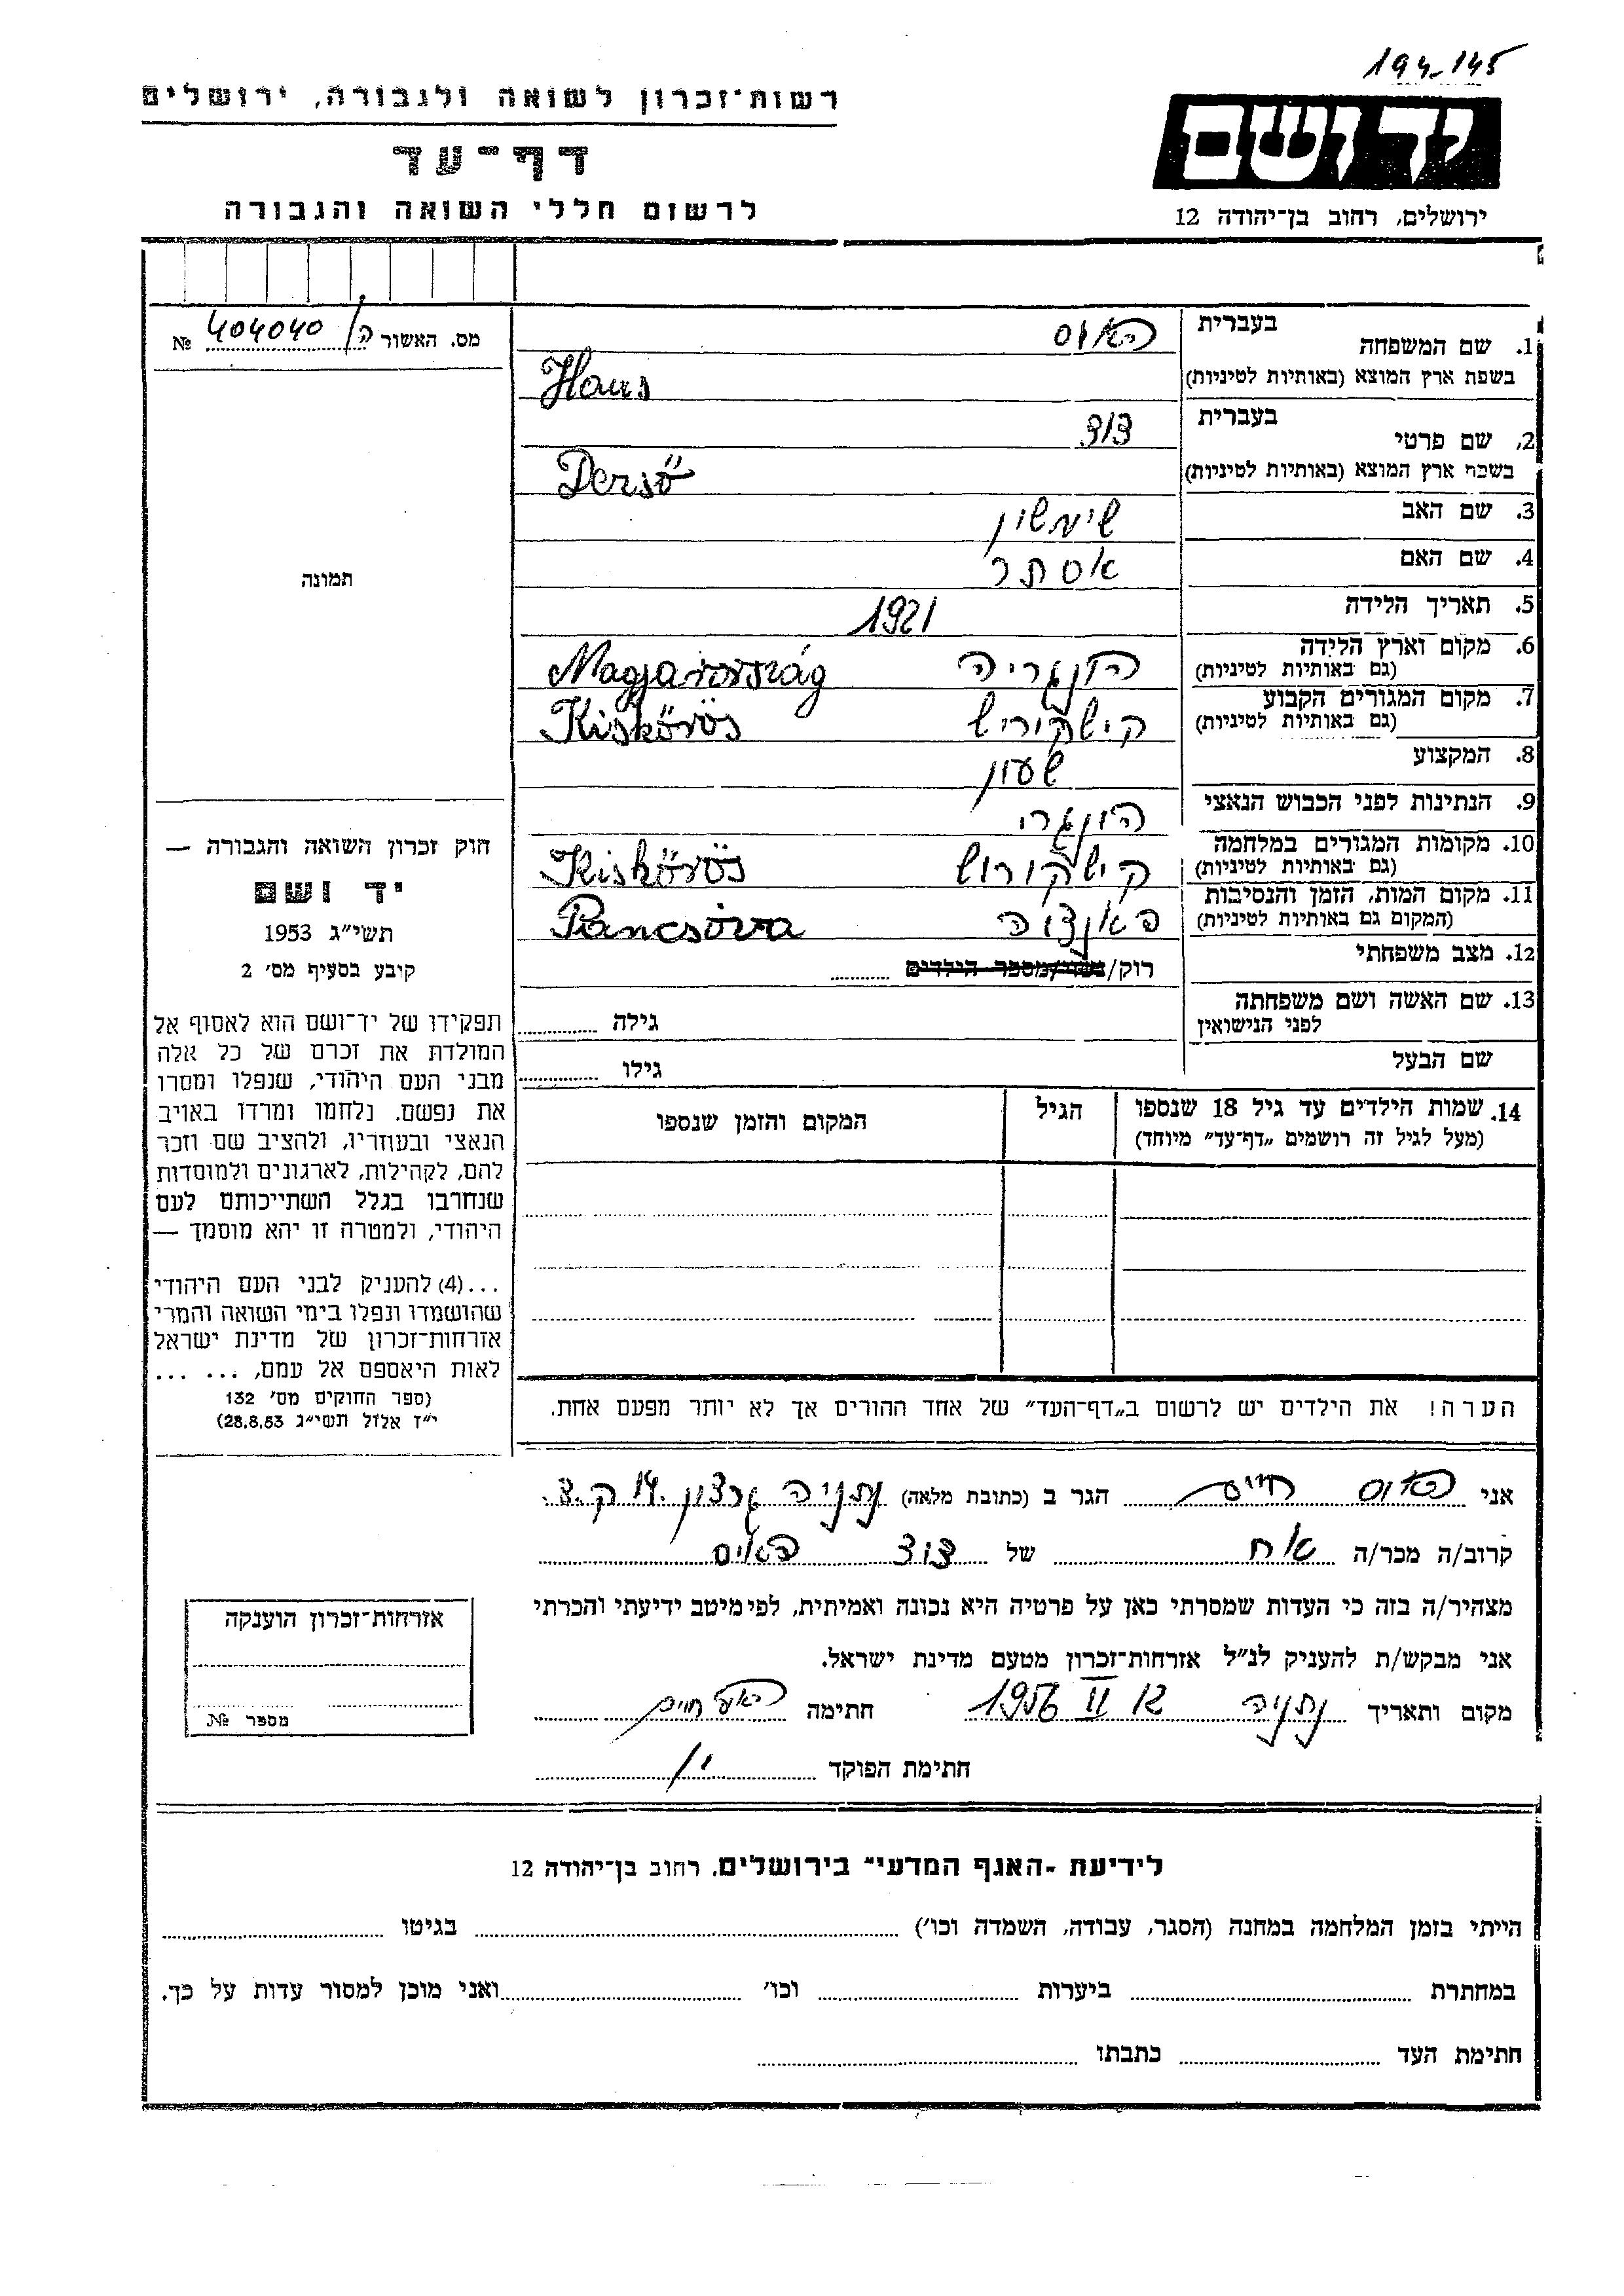 194-145
רשות־זכרון לשואה ולגבורה, ירושלים
יד ושם
דף־עד
לרשום חללי השואה והגבורה
ירושלים, רחוב בן־יהודה 12
מס. האשור ה/ 404040 №
1. שם המשפחה בעברית האוס
בשפת ארץ המוצא (באותיות לטיניות) Haus
2. שם פרטי בעברית דוד
בשפת ארץ המוצא (באותיות לטיניות) Dersö
3. שם האב שימשון
4. שם האם אסתר
5. תאריך הלידה 1921
6. מקום וארץ הלידה הונגריה Magyarország
(גם באותיות לטיניות)
7. מקום המגורים הקבוע קישקוריש Kiskörös
(גם באותיות לטיניות)
8. המקצוע שען
9. הנתינות לפני הכבוש הנאצי הונגרי
10. מקומות המגורים במלחמה קישקורוש Kiskörös
(גם באותיות לטיניות)
11. מקום המות, הזמן והנסיבות Pancsóva
(המקום גם באותיות לטיניות)
12. מצב משפחתי רוק/נשוי/מספר הילדים
13. שם האשה ושם משפחתה גילה
לפני הנישואין
שם הבעל גילו
14. שמות הילדים עד גיל 18 שנספו הגיל המקום והזמן שנספו
(מעל לגיל זה רושמים „דף־עד” מיוחד)
הערה! את הילדים יש לרשום ב„דף־העד” של אחד ההורים אך לא יותר מפעם אחת.
תמונה
חוק זכרון השואה והגבורה —
יד ושם
תשי״ג 1953
קובע בסעיף מס׳ 2
תפקידו של יד־ושם הוא לאסוף אל
המולדת את זכרם של כל אלה
מבני העם היהודי, שנפלו ומסרו
את נפשם. נלחמו ומרדו באויב
הנאצי ובעוזריו, ולהציב שם וזכר
להם, לקהילות, לארגונים ולמוסדות
שנחרבו בגלל השתייכותם לעם
היהודי, ולמטרה זו יהא מוסמך —
...(4) להעניק לבני העם היהודי
שהושמדו ונפלו בימי השואה והמרי
אזרחות־זכרון של מדינת ישראל
לאות היאספם אל עמם, ... ...
(ספר החוקים מס׳ 132
י״ז אלול תשי״ג 28.8.53)
אני האוס חיים הגר ב (כתובת מלאה) נתניה
קרוב/ה מכר/ה אח של דוד האוס
מצהיר/ה בזה כי העדות שמסרתי כאן על פרטיה היא נכונה ואמיתית, לפי מיטב ידיעתי והכרתי
אני מבקש/ת להעניק לנ״ל אזרחות־זכרון מטעם מדינת ישראל.
מקום ותאריך נתניה 12 II 1956 חתימה האוס חיים
חתימת הפוקד
אזרחות־זכרון הוענקה
מספר №
לידיעת ־האגף המדעי״ בירושלים. רחוב בן־יהודה 12
הייתי בזמן המלחמה במחנה (הסגר, עבודה, השמדה וכו׳) בגיטו
במחתרת ביערות וכו׳ ואני מוכן למסור עדות על כך.
חתימת העד כתבתו